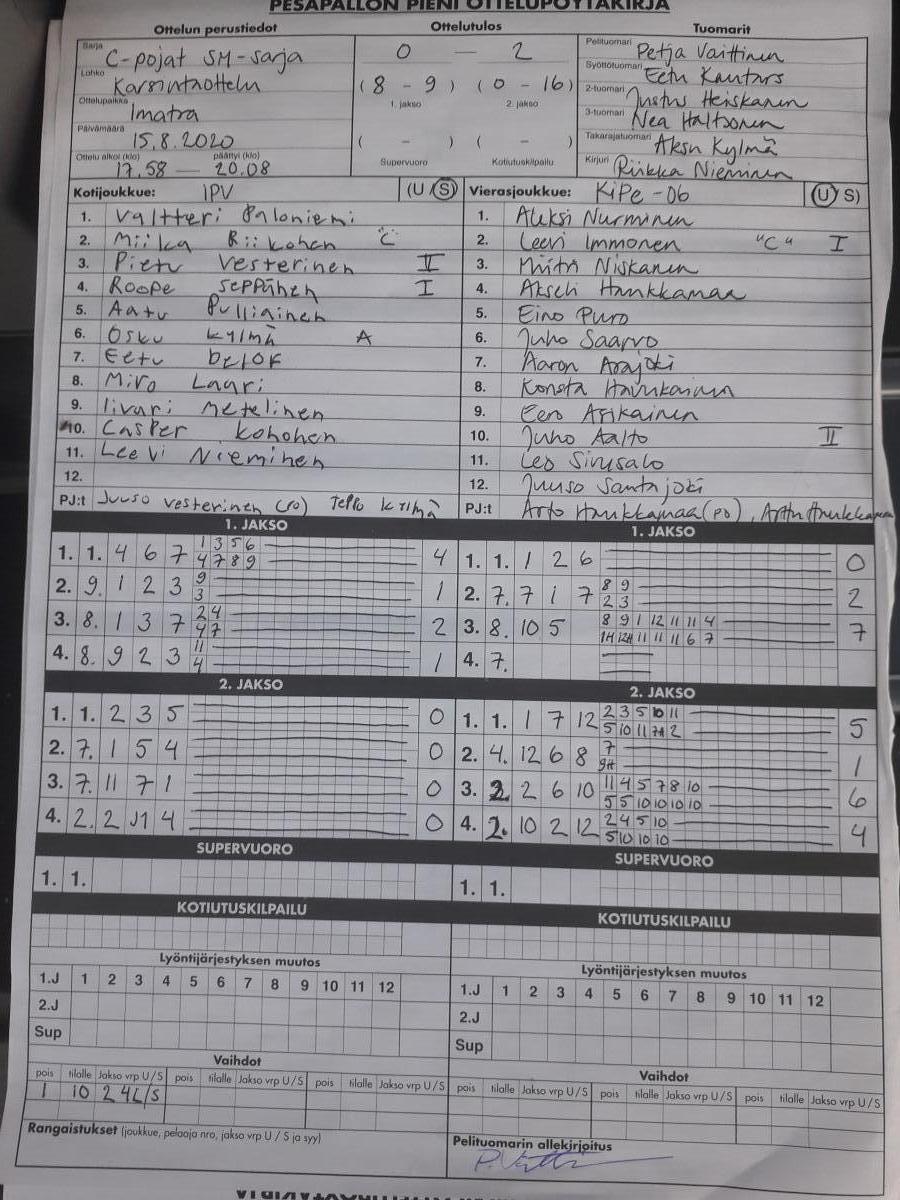 PESÄPALLON PIENI OTTELUPÖYTÄKIRJA
Ottelun perustiedot Ottelutulos Tuomarit
Sarja C-pojat SM-sarja 0 — 2 Pelituomari Petja Vaittinen
Lohko Karsintaottelu (8 - 9) (0 - 16) Syöttötuomari Eetu
1. jakso 2. jakso
Ottelupaikka Imatra 2-tuomari Justus Heiskanen
3-tuomari Nea Haltsonen
Päivämäärä 15.8.2020 ( - ) ( - ) Takarajatuomari Aksu Kylmä
Ottelu alkoi (klo) 17.58 — päättyi (klo) 20.08 Supervuoro Kotiutuskilpailu Kirjuri Riikka Nieminen
Kotijoukkue: IPV (U / S) Vierasjoukkue: KiPe -06 (U / S)
1. Valtteri Paloniemi 1. Aleksi Nurminen
2. Miika Riikohen "C" 2. Leevi Immonen "C" I
3. Pietu Vesterinen II 3. Miitri Niskanen
4. Roope Seppänen I 4. Akseli Haukkamaa
5. Aatu Pulliainen 5. Eino Puro
6. Osku Kylmä A 6. Juho Saarvo
7. Eetu 7. Aaron Arajoki
8. Miro Lauri 8. Konsta
9. Iivari Metelinen 9. Eero Asikainen
10. Casper Kohohen 10. Juho Aalto II
11. Leevi Nieminen 11. Leo Sirusalo
12. 12. Juuso Santajoki
PJ:t Juuso Vesterinen (ro) Teppo Kylmä PJ:t Arto Haukkamaa (PO), Arttu Haukkamaa
1. JAKSO 1. JAKSO
1. 1. 4 6 7 1 3 5 6 4 1. 1. 1 2 6 0
4 7 8 9
2. 9. 1 2 3 9 1 2. 7. 7 1 7 8 9 2
3 2 3
3. 8. 1 3 7 2 4 2 3. 8. 10 5 8 9 1 12 11 11 4 7
4 7 11 11 11 6 7
4. 8. 9 2 3 11 1 4. 7.
4
2. JAKSO 2. JAKSO
1. 1. 2 3 5 0 1. 1. 1 7 12 2 3 5 10 11 5
5 10 11 2
2. 7. 1 5 4 0 2. 4. 12 6 8 7 1
3. 7. 11 7 1 0 3. 2. 2 6 10 11 4 5 7 8 10 6
5 5 10 10 10 10
4. 2. 2 4 0 4. 2. 10 2 12 2 4 5 10 4
5 10 10 10
SUPERVUORO SUPERVUORO
1. 1. 1. 1.
KOTIUTUSKILPAILU KOTIUTUSKILPAILU
Lyöntijärjestyksen muutos Lyöntijärjestyksen muutos
1.J 1 2 3 4 5 6 7 8 9 10 11 12 1.J 1 2 3 4 5 6 7 8 9 10 11 12
2.J 2.J
Sup Sup
Vaihdot Vaihdot
pois tilalle Jakso vrp U/S pois tilalle Jakso vrp U/S pois tilalle Jakso vrp U/S pois tilalle Jakso vrp U/S pois tilalle Jakso vrp U/S pois tilalle Jakso vrp U/S
1 10 2 4L/S
Rangaistukset (joukkue, pelaaja nro, jakso vrp U / S ja syy) Pelituomarin allekirjoitus